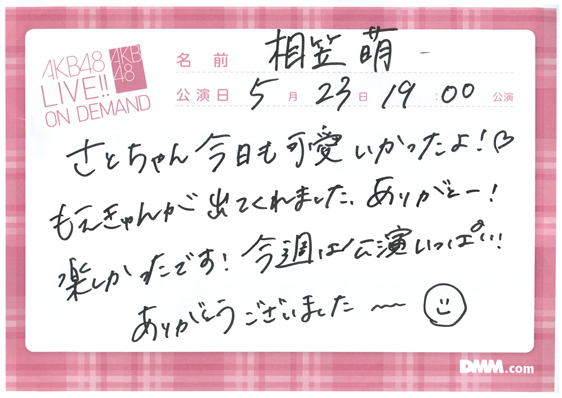 AKB48
LIVE!!
ON DEMAND
AKB
48
名前 相笠萌
公演日 5月23日 19:00 公演
さとちゃん今日も可愛いかったよ!♡
もえきゅんが出てくれました、ありがとー!
楽しかったです!今週は公演いっぱい!!
ありがとうございました〜
DMM.com